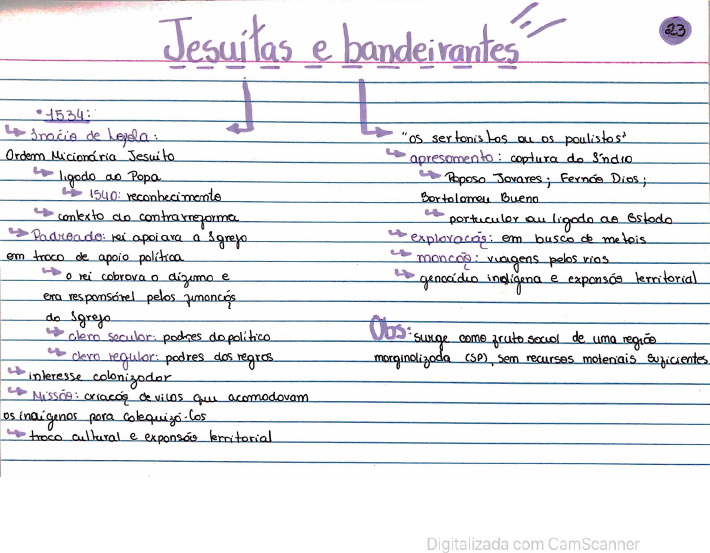 23
Jesuítas e bandeirantes
• 1534:
Inácio de Loyola:
Ordem Micionária Jesuíta
ligado ao Papa
1540: reconhecimento
contexto da contrarreforma
Padroado: rei apoiava a Igreja
em troca de apoio política
o rei cobrava o dízimo e
era responsável pelas finanças
da Igreja
clero secular: padres da política
clero regular: padres das regras
interesse colonizador
Missão: criação de vilas que acomodavam
os indígenas para catequizá-los
troca cultural e expansão territorial
"os sertanistas ou os paulistas"
apresamento: captura do índio
Raposo Tavares; Fernão Dias;
Bartolomeu Bueno
particular ou ligado ao Estado
exploração: em busca de metais
monção: viagens pelos rios
genocídio indígena e expansão territorial
Obs: surge como fruto social de uma região
marginalizada (SP), sem recursos materiais suficientes
Digitalizada com CamScanner